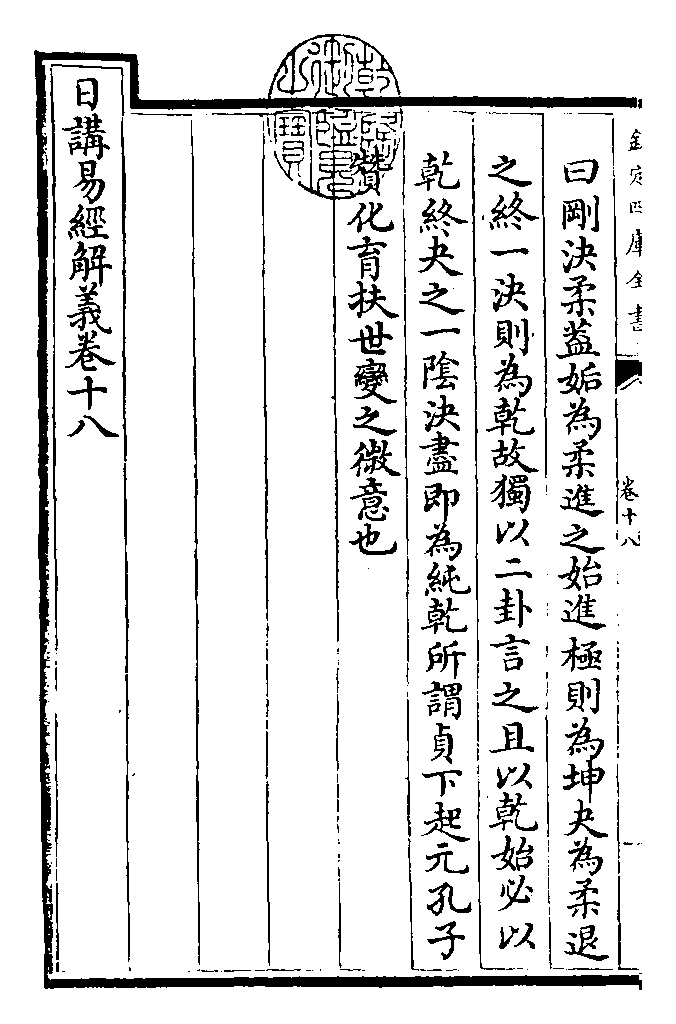 欽定四庫全書
卷十八
曰剛決柔葢姤為柔進之始進極則為坤夬為柔退
之終一決則為乾故獨以二卦言之且以乾始必以
乾終夬之一陰決盡即為純乾所謂貞下起元孔子
贊化育扶世變之微意也
日講易經解義卷十八
乾隆御覽之寶